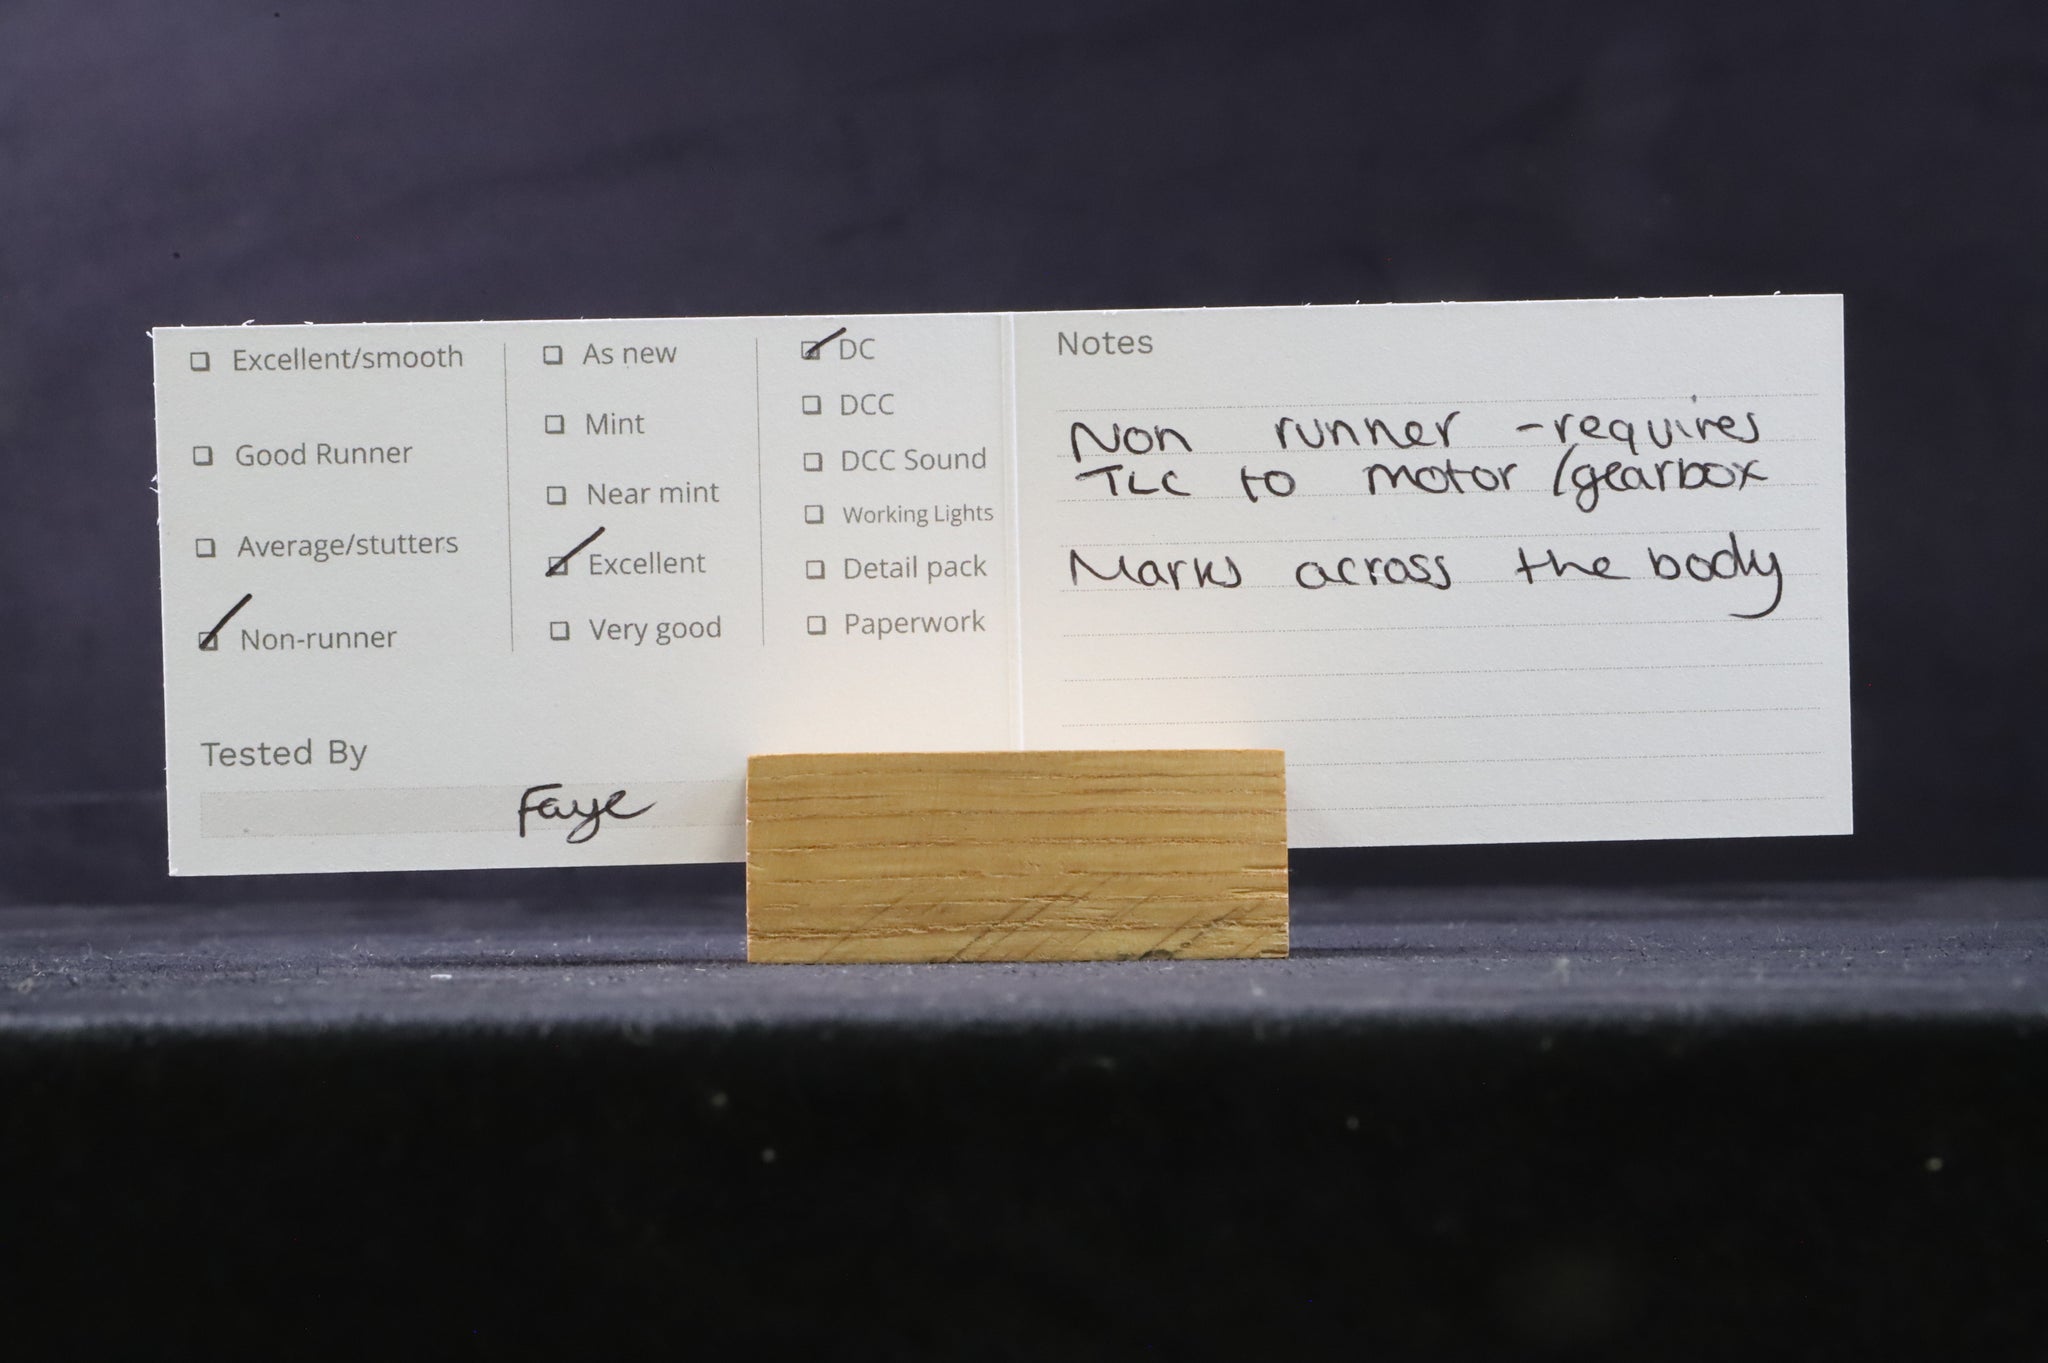 Excellent/smooth
Good Runner
Average/stutters
Non-runner
As new
Mint
Near mint
Excellent
Very good
DC
DCC
DCC Sound
Working Lights
Detail pack
Paperwork
Tested By
Faye
Notes
Non runner - requires
TLC to motor/gearbox
Marks across the body